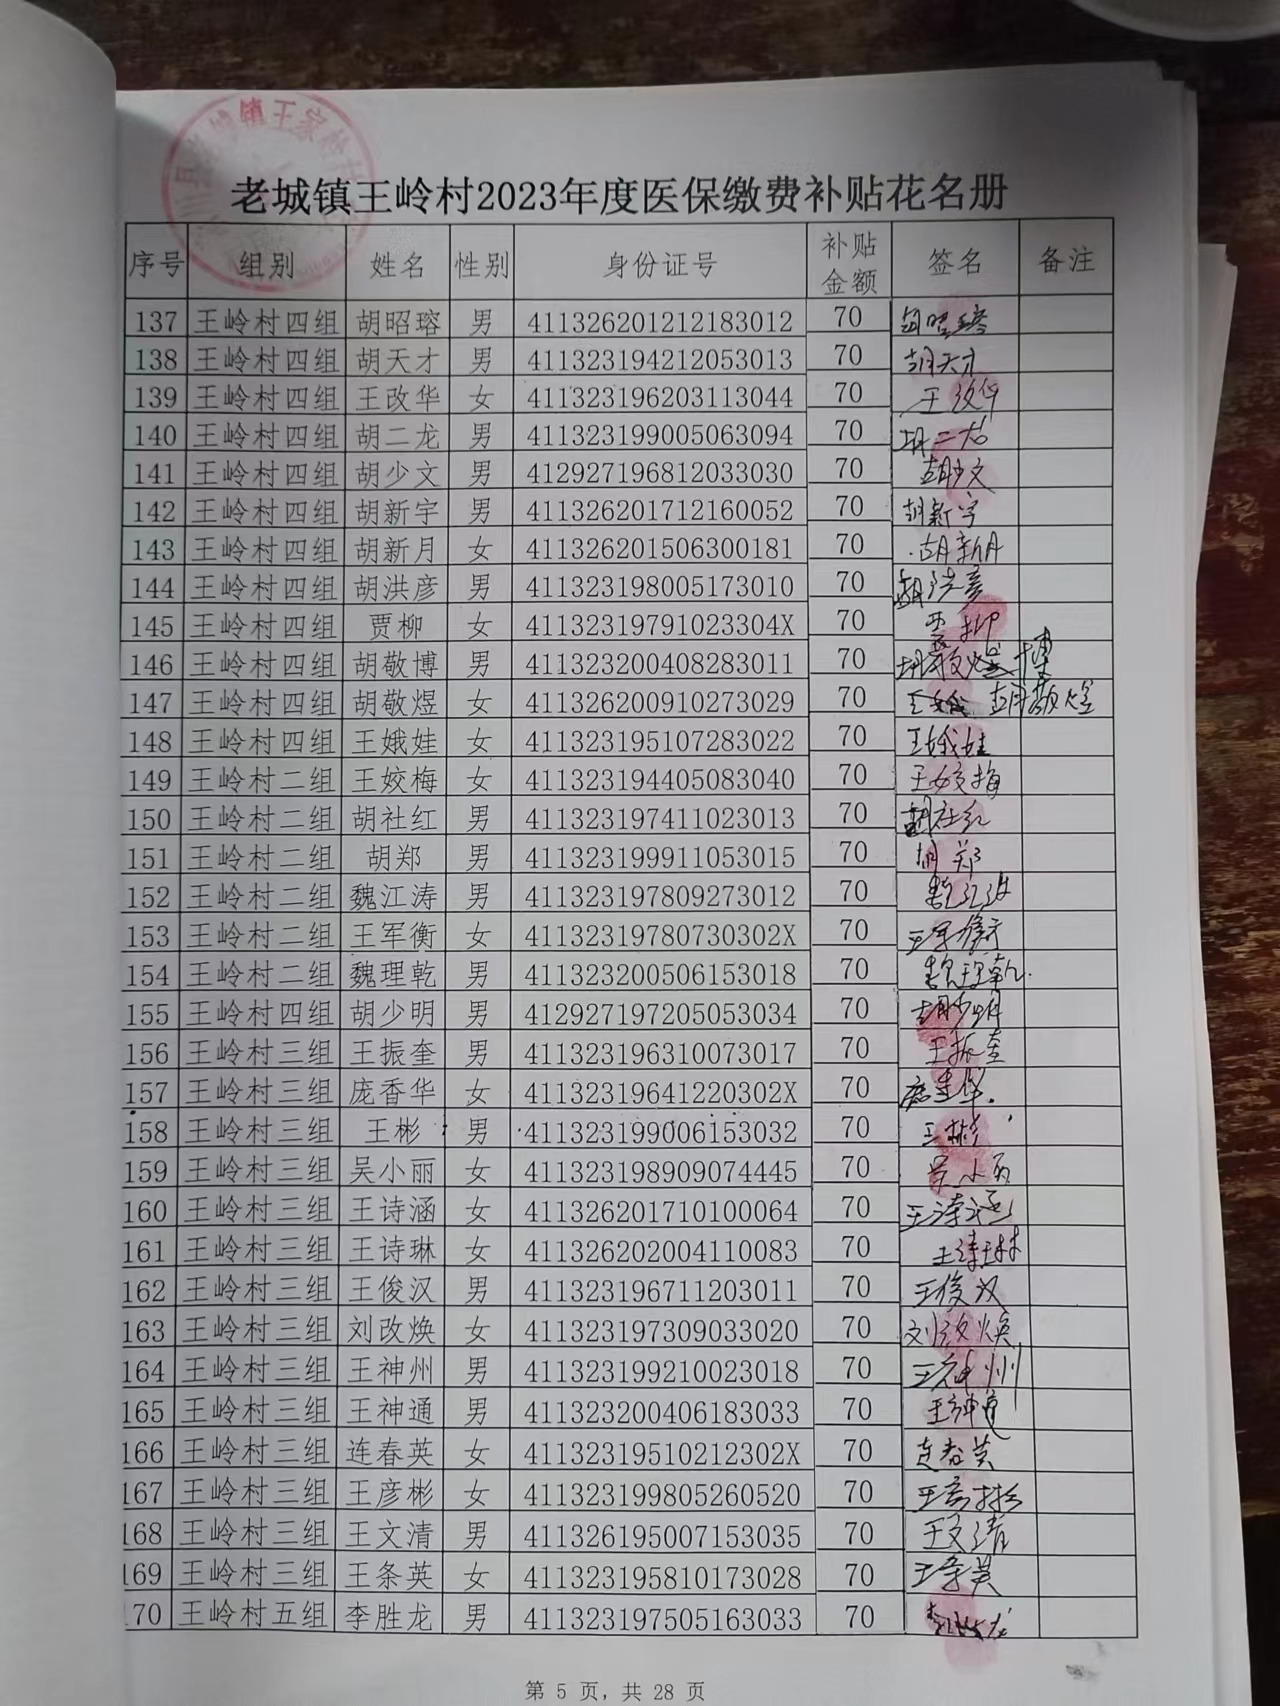 老城镇王岭村2023年度医保缴费补贴花名册
序号 组别 姓名 性别 身份证号 补贴金额 签名 备注
137 王岭村四组 胡昭瑢 男 411326201212183012 70 胡昭瑢
138 王岭村四组 胡天才 男 411323194212053013 70 胡天才
139 王岭村四组 王改华 女 411323196203113044 70 王改华
140 王岭村四组 胡二龙 男 411323199005063094 70 胡二龙
141 王岭村四组 胡少文 男 412927196812033030 70 胡少文
142 王岭村四组 胡新宇 男 411326201712160052 70 胡新宇
143 王岭村四组 胡新月 女 411326201506300181 70 胡新月
144 王岭村四组 胡洪彦 男 411323198005173010 70 胡洪彦
145 王岭村四组 贾柳 女 41132319791023304X 70 贾柳
146 王岭村四组 胡敬博 男 411323200408283011 70 胡敬博
147 王岭村四组 胡敬煜 女 411326200910273029 70 胡敬煜
148 王岭村四组 王娥娃 女 411323195107283022 70 王娥娃
149 王岭村二组 王姣梅 女 411323194405083040 70 王姣梅
150 王岭村二组 胡社红 男 411323197411023013 70 胡社红
151 王岭村二组 胡郑 男 411323199911053015 70 胡郑
152 王岭村二组 魏江涛 男 411323197809273012 70 魏江涛
153 王岭村二组 王军衡 女 41132319780730302X 70 王军衡
154 王岭村二组 魏理乾 男 411323200506153018 70 魏理乾
155 王岭村四组 胡少明 男 412927197205053034 70 胡少明
156 王岭村三组 王振奎 男 411323196310073017 70 王振奎
157 王岭村三组 庞香华 女 41132319641220302X 70 庞香华
158 王岭村三组 王彬 男 411323199006153032 70 王彬
159 王岭村三组 吴小丽 女 411323198909074445 70 吴小丽
160 王岭村三组 王诗涵 女 411326201710100064 70 王诗涵
161 王岭村三组 王诗琳 女 411326202004110083 70 王诗琳
162 王岭村三组 王俊汉 男 411323196711203011 70 王俊汉
163 王岭村三组 刘改焕 女 411323197309033020 70 刘改焕
164 王岭村三组 王神州 男 411323199210023018 70 王神州
165 王岭村三组 王神通 男 411323200406183033 70 王神通
166 王岭村三组 连春英 女 41132319510212302X 70 连春英
167 王岭村三组 王彦彬 女 411323199805260520 70 王彦彬
168 王岭村三组 王文清 男 411326195007153035 70 王文清
169 王岭村三组 王条英 女 411323195810173028 70 王条英
170 王岭村五组 李胜龙 男 411323197505163033 70
第 5 页，共 28 页